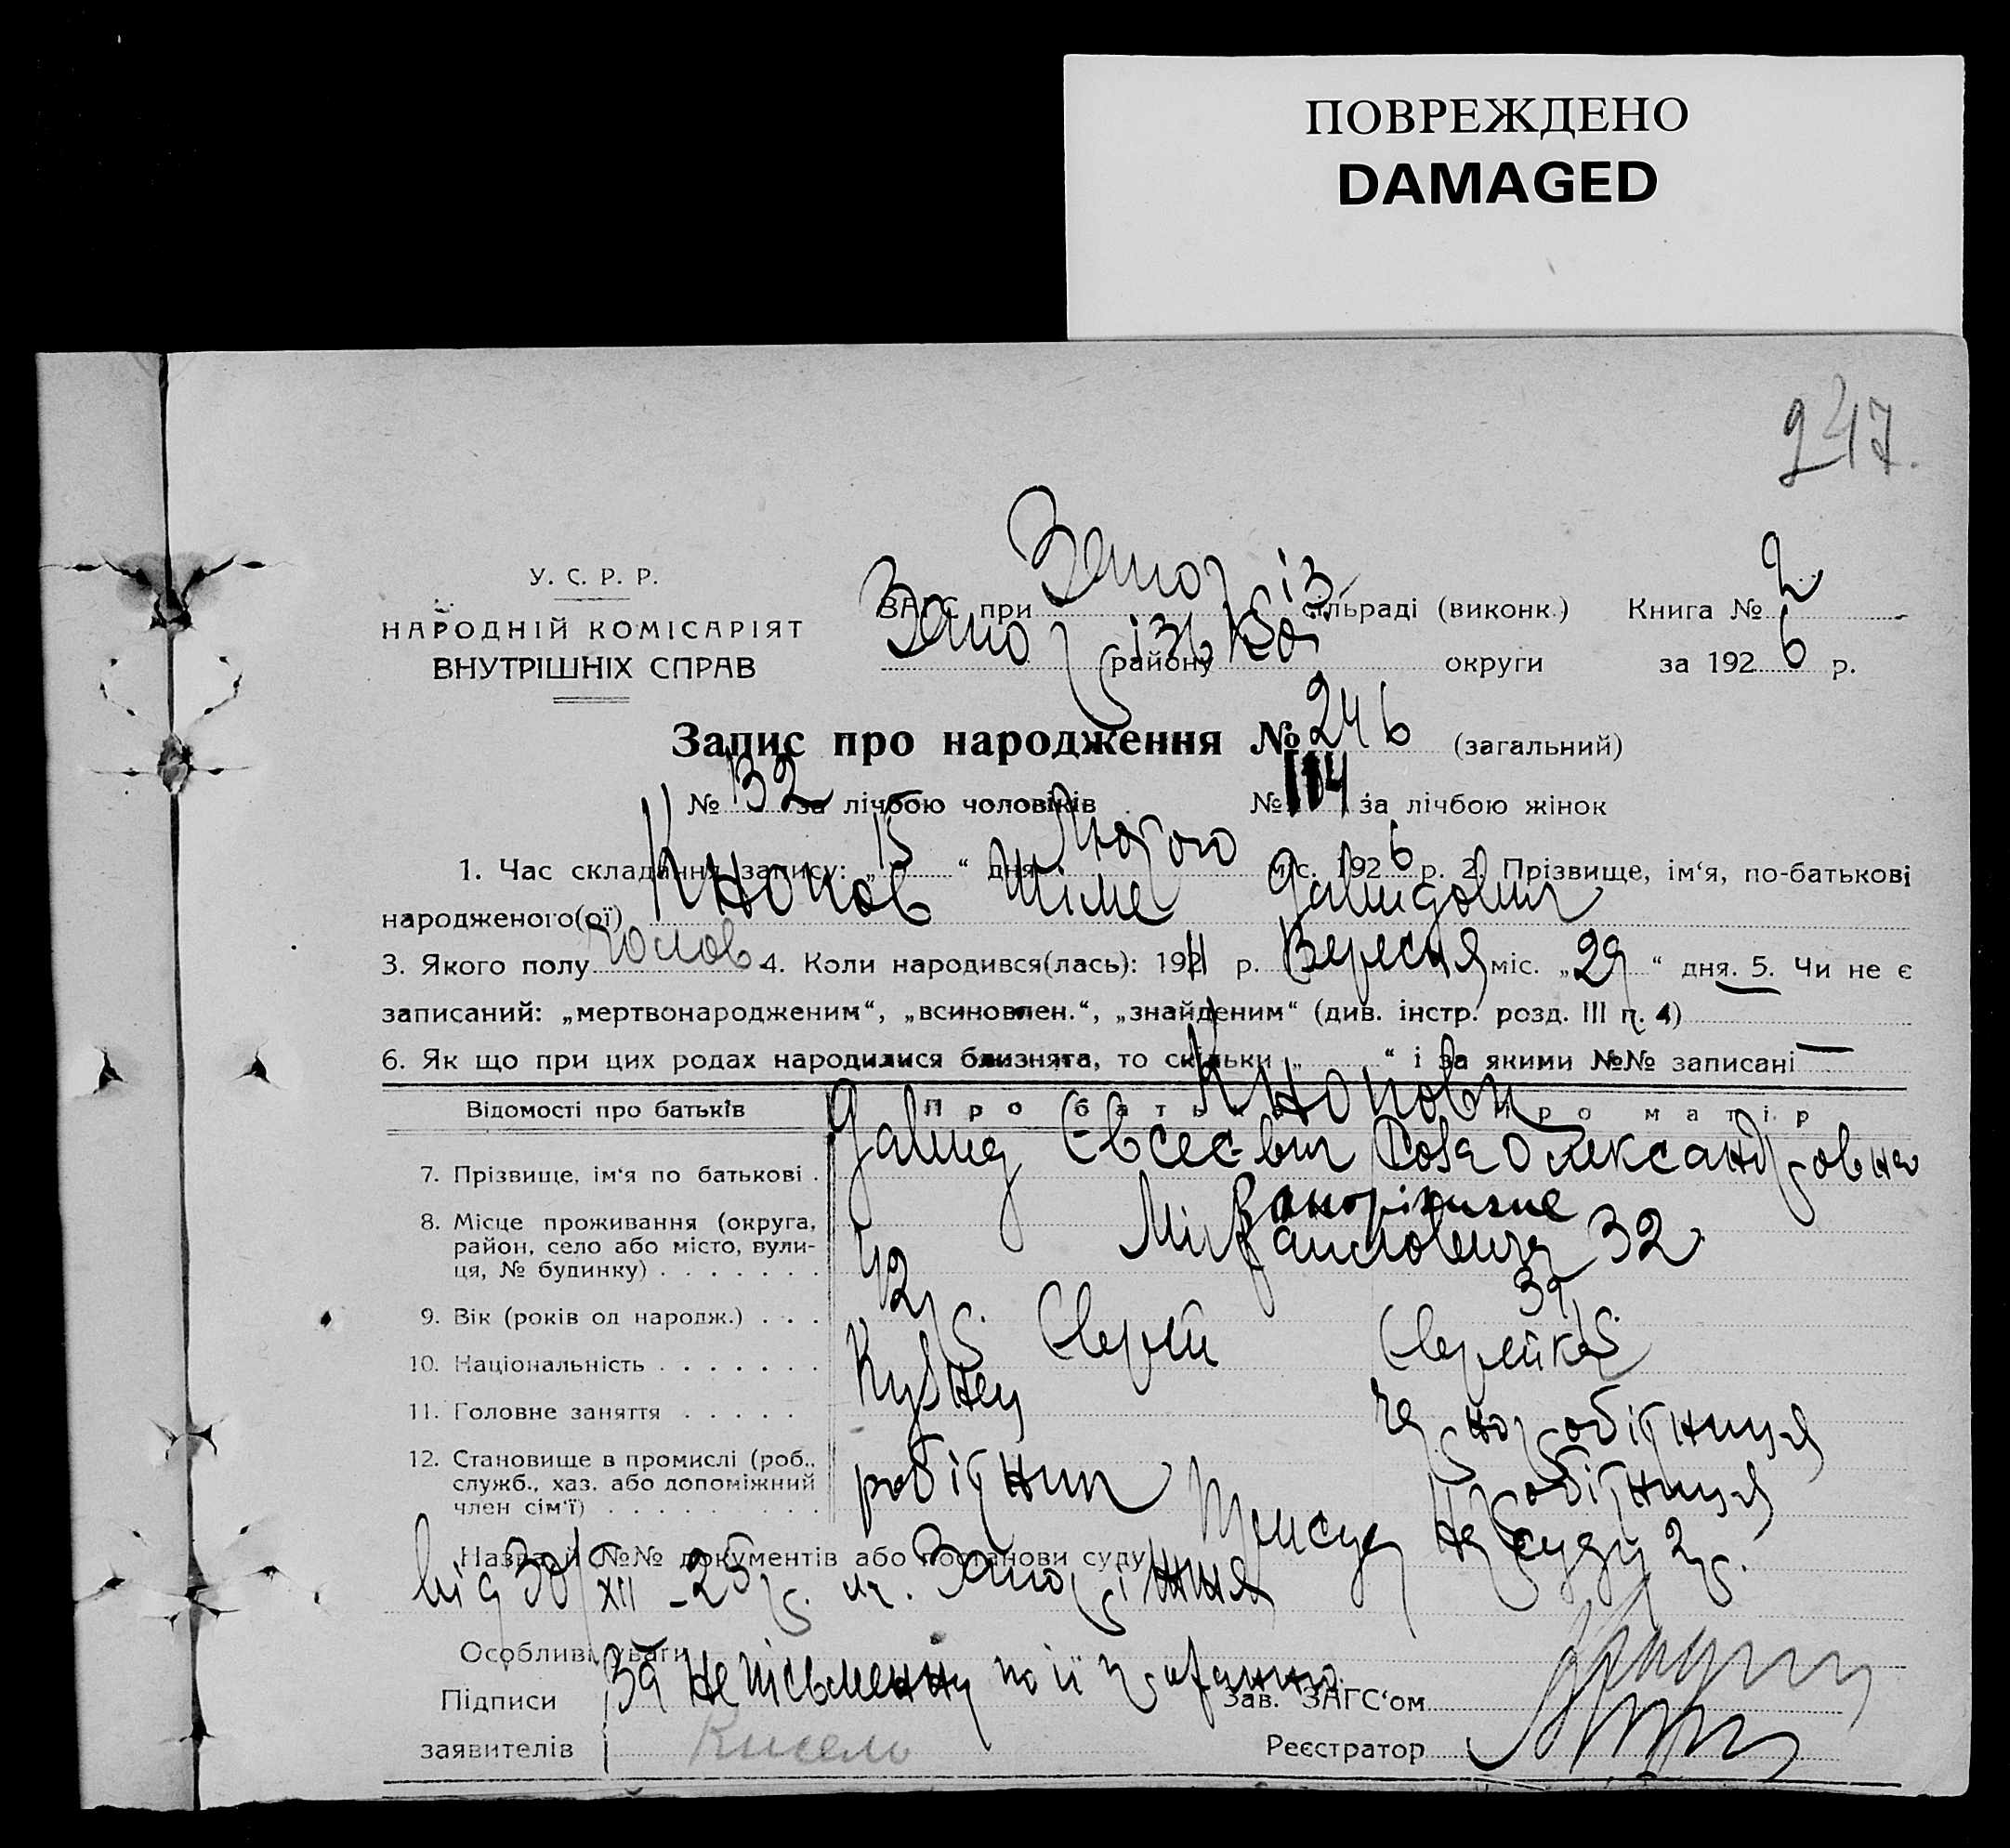 ПОВРЕЖДЕНО
DAMAGED
247.
У. С. Р. Р.
НАРОДНІЙ КОМІСАРІЯТ
ВНУТРІШНІХ СПРАВ
ЗАГС при Запоріз сільраді (виконк.) Книга № 2
Запорізької району округи за 1926 р.
Запис про народження № 246 (загальний)
№ 132 за лічбою чоловіків № 114 за лічбою жінок
1. Час складання запису: „15“ дня Лютого міс. 1926 р. 2. Прізвище, ім‘я, по-батькові
народженого(ої) Кнопов Давидович
3. Якого полу чолов 4. Коли народився(лась): 1911 р. Вересня міс. „29“ дня. 5. Чи не є
записаний: „мертвонародженим“, „всиновлен.“, „знайденим“ (див. інстр. розд. III п. 4)
6. Як що при цих родах народилися близнята, то скільки „ “ і за якими №№ записані —
Кнопови
Відомості про батьків Про батька Про матір
7. Прізвище, ім‘я по батькові . Давид Євсеєвич Роза Олександровна
8. Місце проживання (округа, район, село або місто, вулиця, № будинку) . . . . . . . Запоріжжя 32
9. Вік (років од народж.) . . . 42 р. 39 р.
10. Національність . . . . . . . Єврей Єврейка
11. Головне заняття . . . . . Кузнец чорноробітниця
12. Становище в промислі (роб., служб., хаз. або допоміжний член сім‘ї) . . . . . . . . . робітник робітниця
Назва й №№ документів або постанови суду Нарсуду 2 р.
від 30/XII-25 р. м. Запоріжжя
Особливі уваги
Підписи За неписьменну по її проханню Зав. ЗАГС‘ом
заявителів Кисель Реєстратор